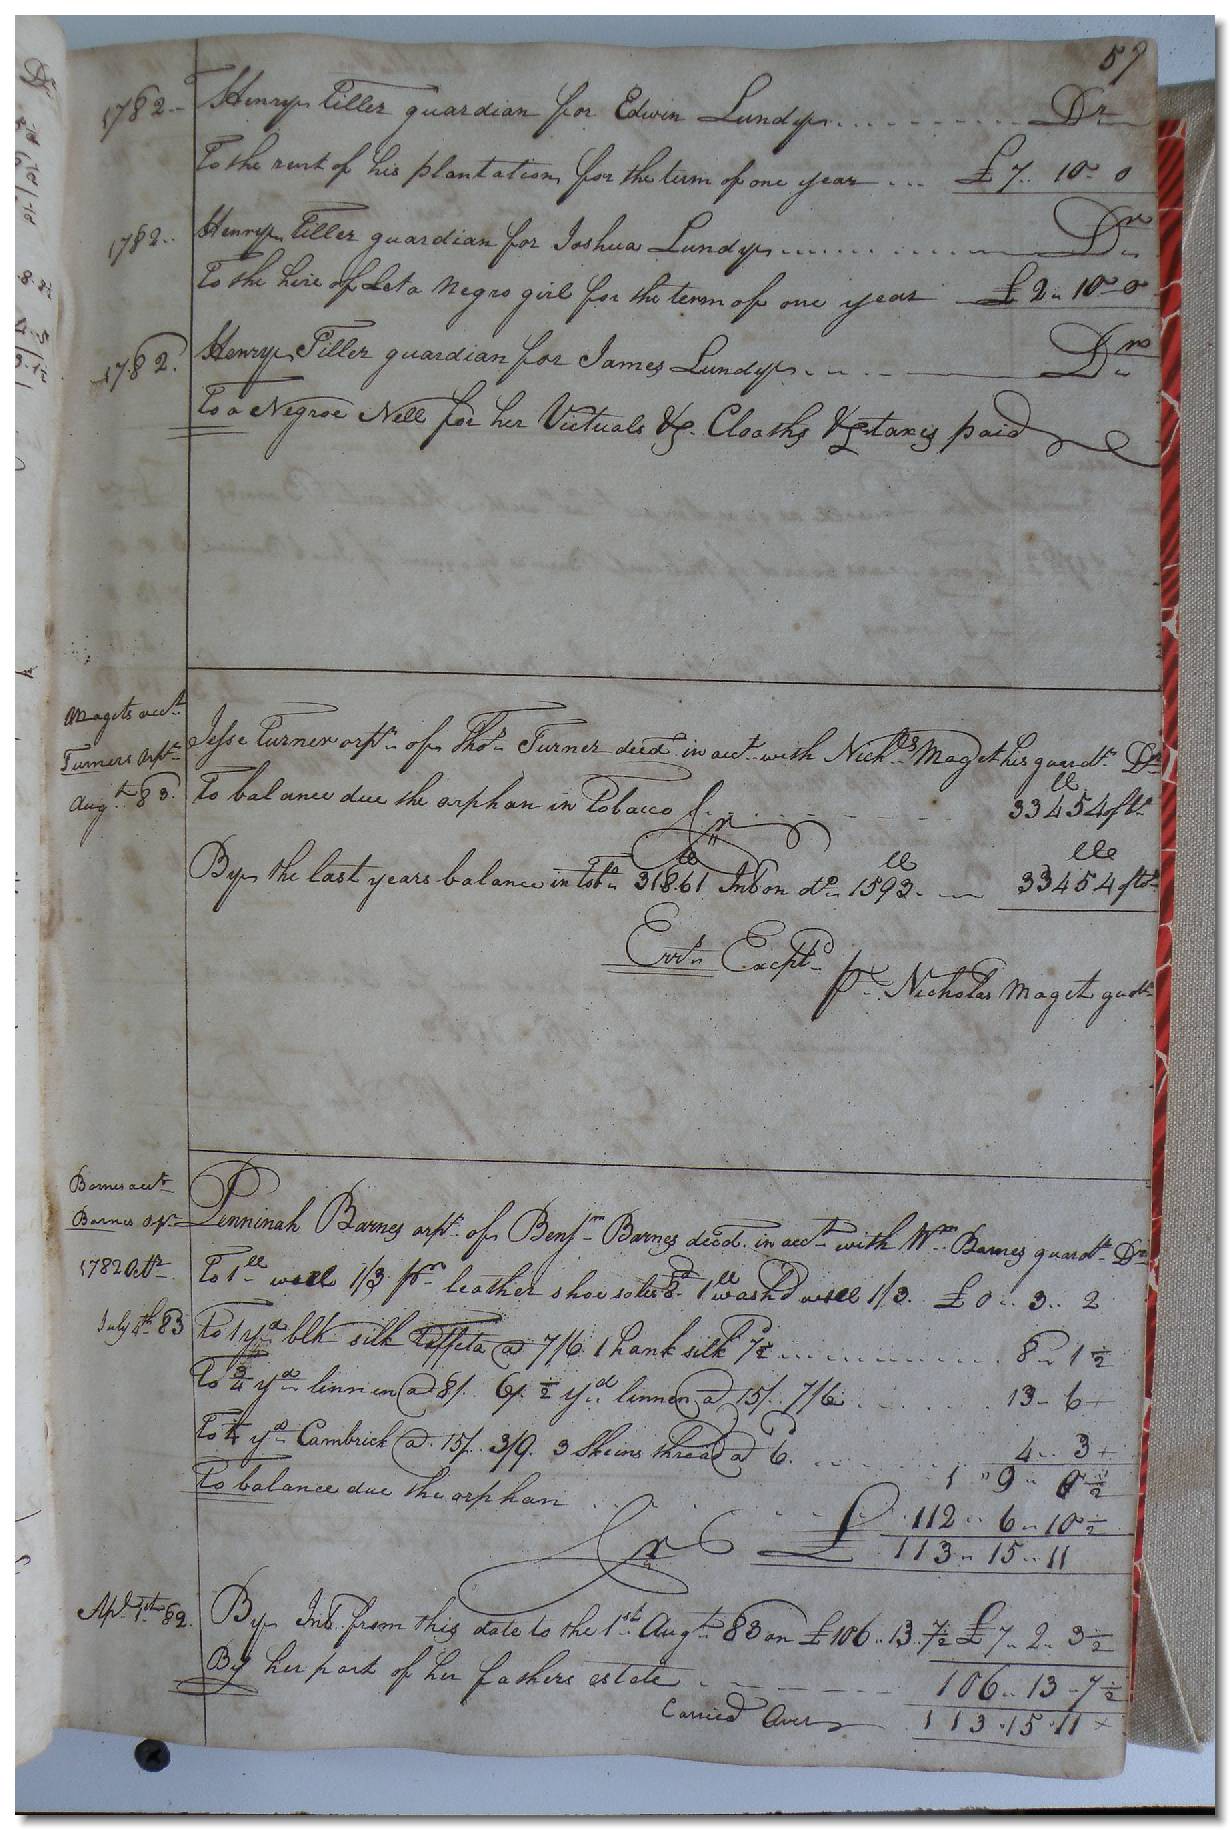 57
1782 Henry Tiller guardian for Edwin Lundy Dr
To the rent of his plantation for the term of one year £7 10 0
1782 Henry Tiller guardian for Joshua Lundy Dr
To the hire of Leta Negro girl for the term of one year £2 10 0
1782 Henry Tiller guardian for James Lundy Dr
To a Negroe Nell for her Victuals &c. Cloaths & taxes paid
Magets acct
Turners orpt
Augt 83
Jesse Turner orpn of Thos Turner decd in acct with Nichs Maget his guardn Dr
To balance due the orphan in Tobacco 33454 lb
Cr
By the last years balance in Tobo 31861 Int on do 1593 33454
Errs Exceptd
pr Nicholas Maget guardn
Barnes acct
Barnes orpn
Penninah Barnes orpn of Benjn Barnes decd in acct with Wm Barnes guardn Dr
1782 Octr To 1 lb wool 1/3 pr leather shoe soles 8d 1 lb washd wool 1/3 £0 3 2
July 4th 83 To 1 yd blk silk Taffeta @ 7/6 1 hank silk 7½ 8 1½
To ¾ yd linnen @ 8/. 6/. ½ yd linnen @ 15/. 7/6 13 6
To ¼ yd Cambrick @ 15/. 3/9. 3 Skeins thread @ 6 4 3
1 9 0½
To balance due the orphan 112 6 10½
Cr £ 113 15 11
Apl 1st 82 By Int from this date to the 1st Augt 83 on £106 13 7½ £7 2 3½
By her part of her fathers estate 106 13 7½
Carried Over 113 15 11